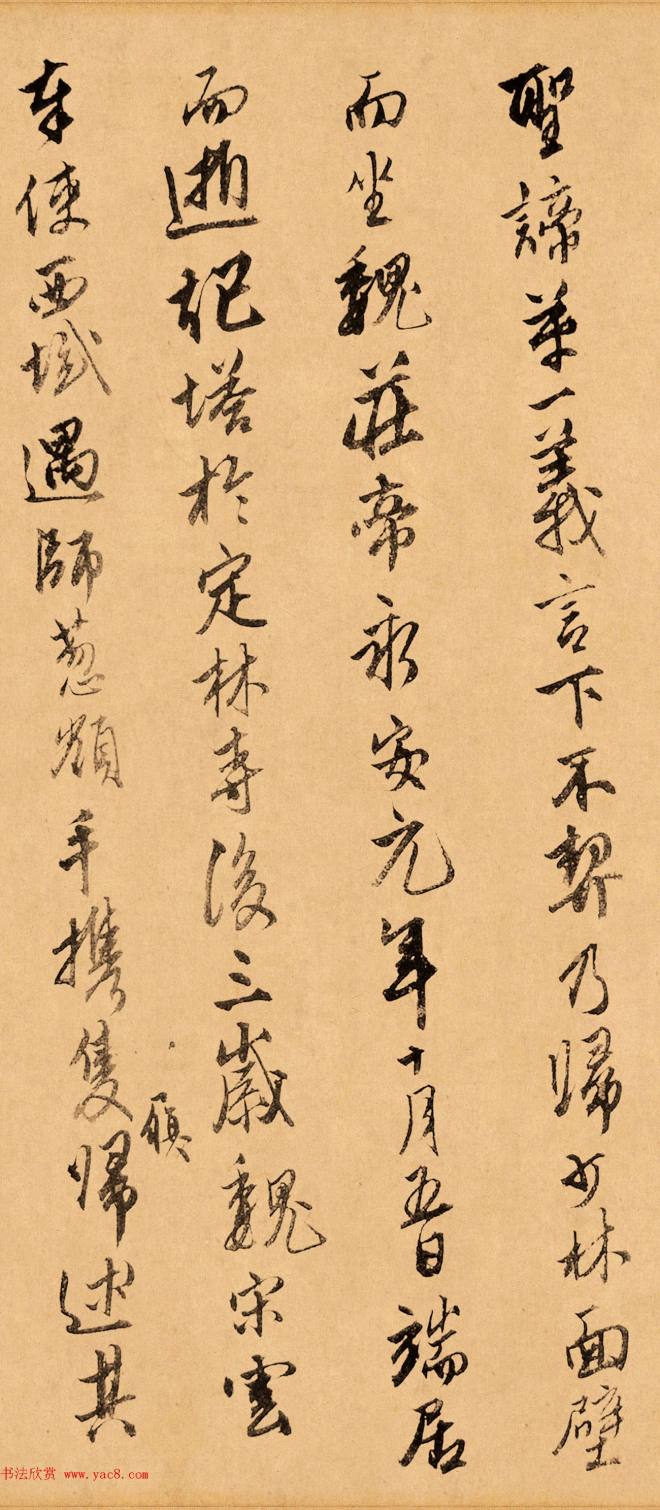 聖諦第一義言下不契乃歸少林面壁
而坐魏莊帝永安元年十月五日端居
而逝祀塔於定林寺後三歲魏宋雲
奉使西域遇師葱嶺手攜隻歸述其
履
书法欣赏 www.yac8.com